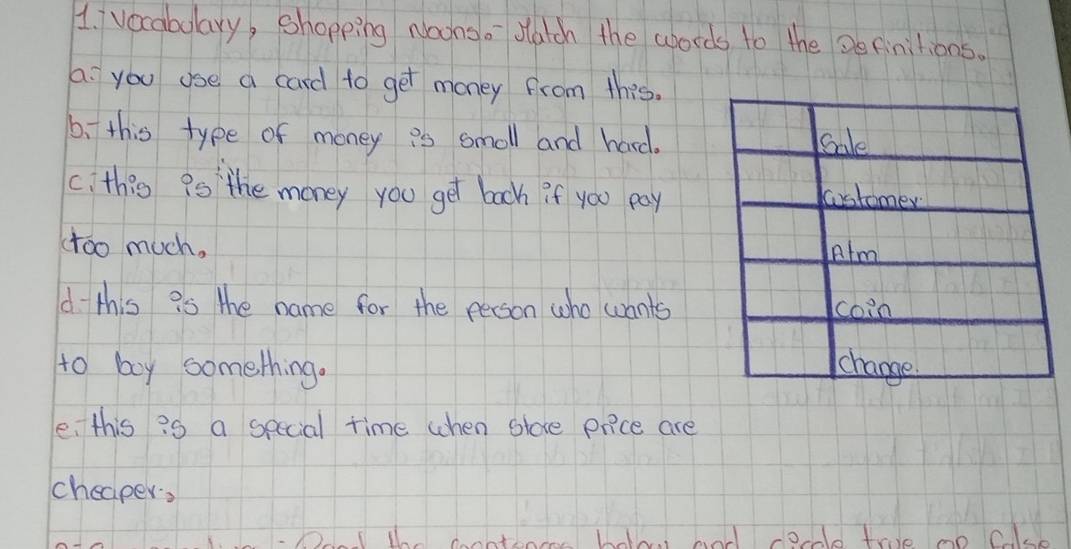 1.- Vocabulary, Shopping Noons.- Match the words to the Definitions.
a.- you use a card to get money from this.
b.- this type of money is small and hard.
c.- this is the money you get back if you pay
too much.
d.- this is the name for the person who wants
to boy something.
e.- this is a special time when store price are
cheaper.
Sale
customer.
Atm
coin
change.
the sentences below and circle true or false